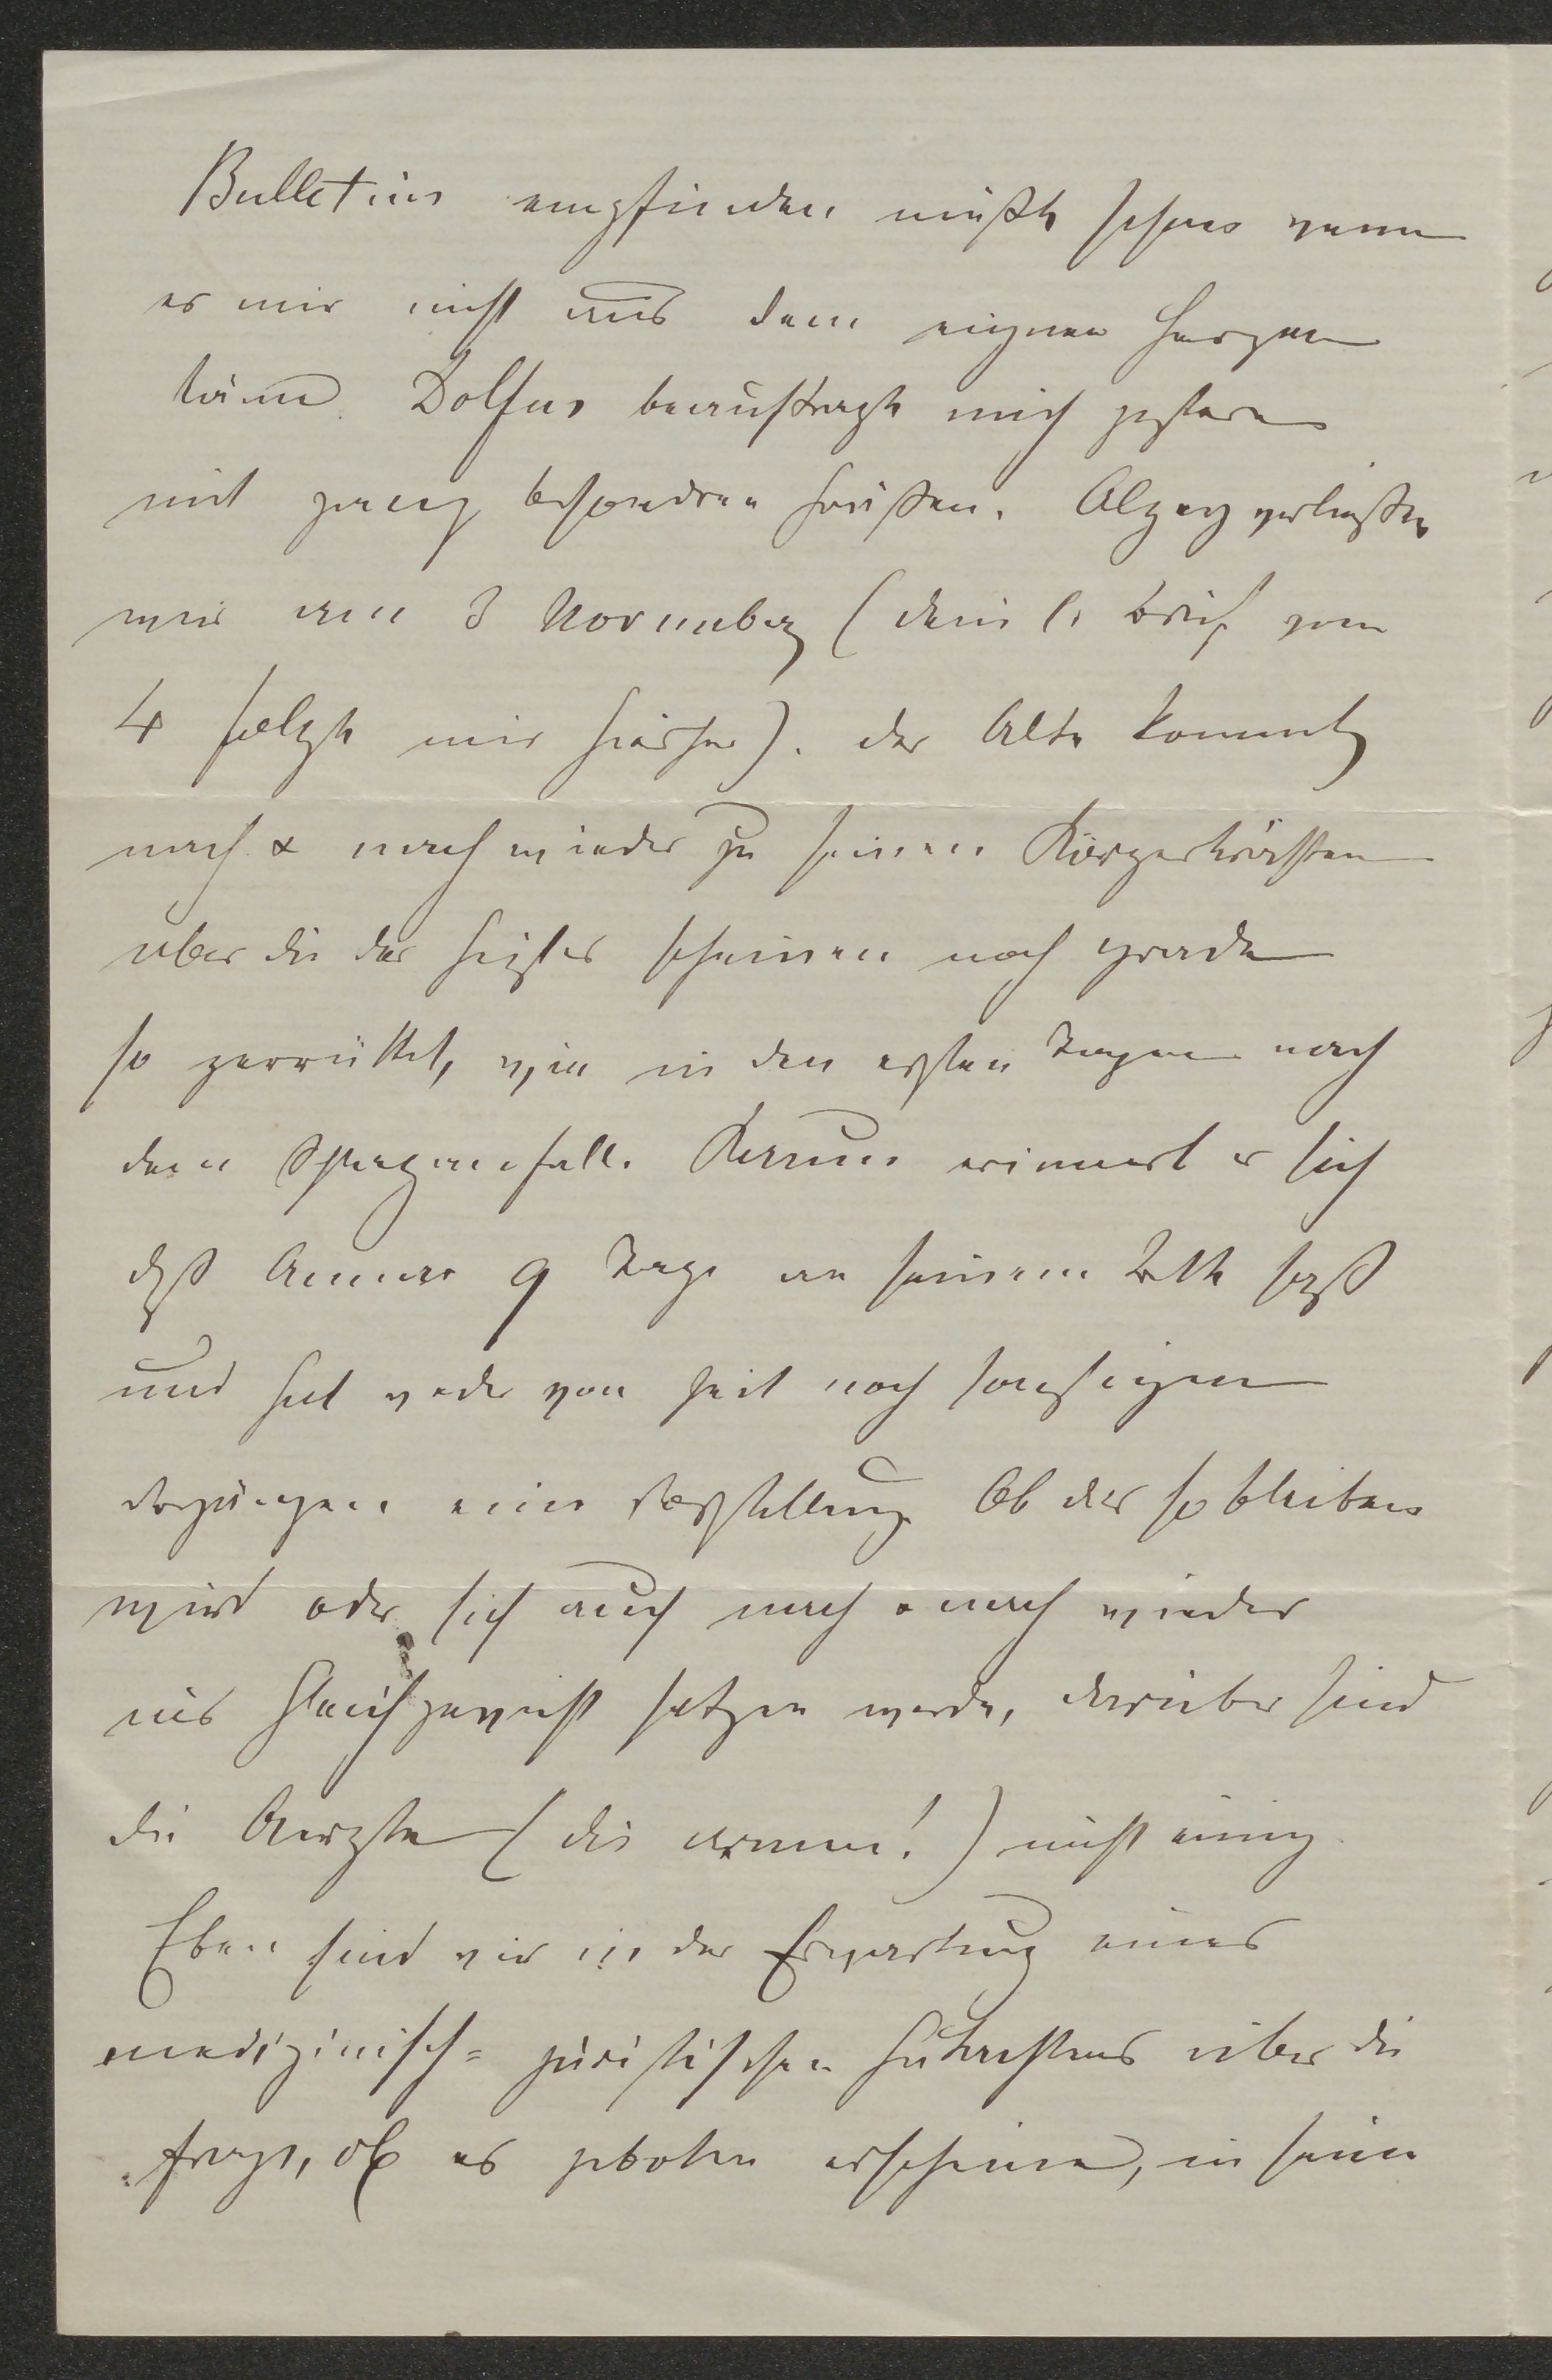 Bulletins empfinden müßte schon wenn
es mir nicht aus dem eignen Herzen
käme. Dolfus beauftragte mich gestern
mit ganz besondren Grüßen. Alzey verließen
wir am 3 November (dein l. Brief vom
4 folgte mir hierher). der Alte kommt
nach & nach wieder zu seinen Körperkräften
aber die des Geistes scheinen noch grade
so zerrüttet, wie in den ersten Tagen nach
dem Schlaganfall. Kaum erinnert er sich
daß Anna 9 Tage an seinem Bette saß
und hat weder von Zeit noch sonstigen
Vorgängen eine Vorstellung. Ob das so bleiben
wird oder sich auch nach & nach wieder
ins Gleichgewicht setzen werde, darüber sind
die Aerzte (die armen!) nicht einig.
Eben sind wir in der Erwartung eines
medizinisch=juristischen Gutachtens über die
Frage, ob es geboten erscheine, in seine